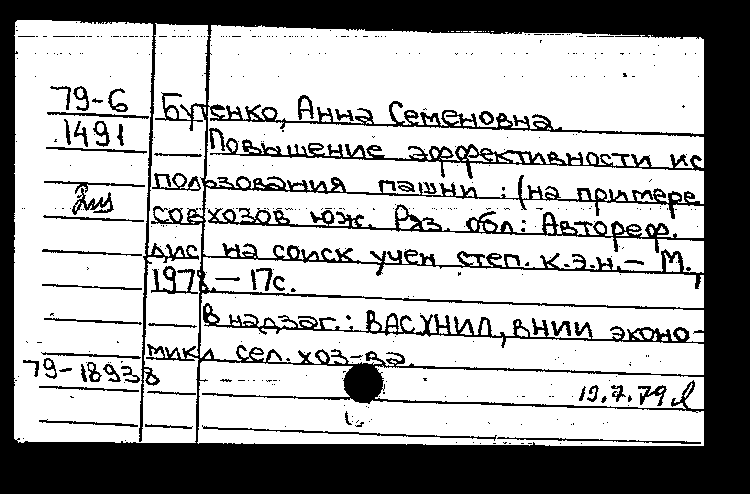 79-6
1491
Бутенко, Анна Семеновна.
Повышение эффективности ис
пользования пашни : (на примере
совхозов юж. Ряз. обл: Автореф.
дис на соиск. учен степ. к.э.н. – М.,
1978. – 17с.
В надзаг.: ВАСХНИЛ, ВНИИ эконо-
мики сел. хоз-ва.
79-18938
19.7.79